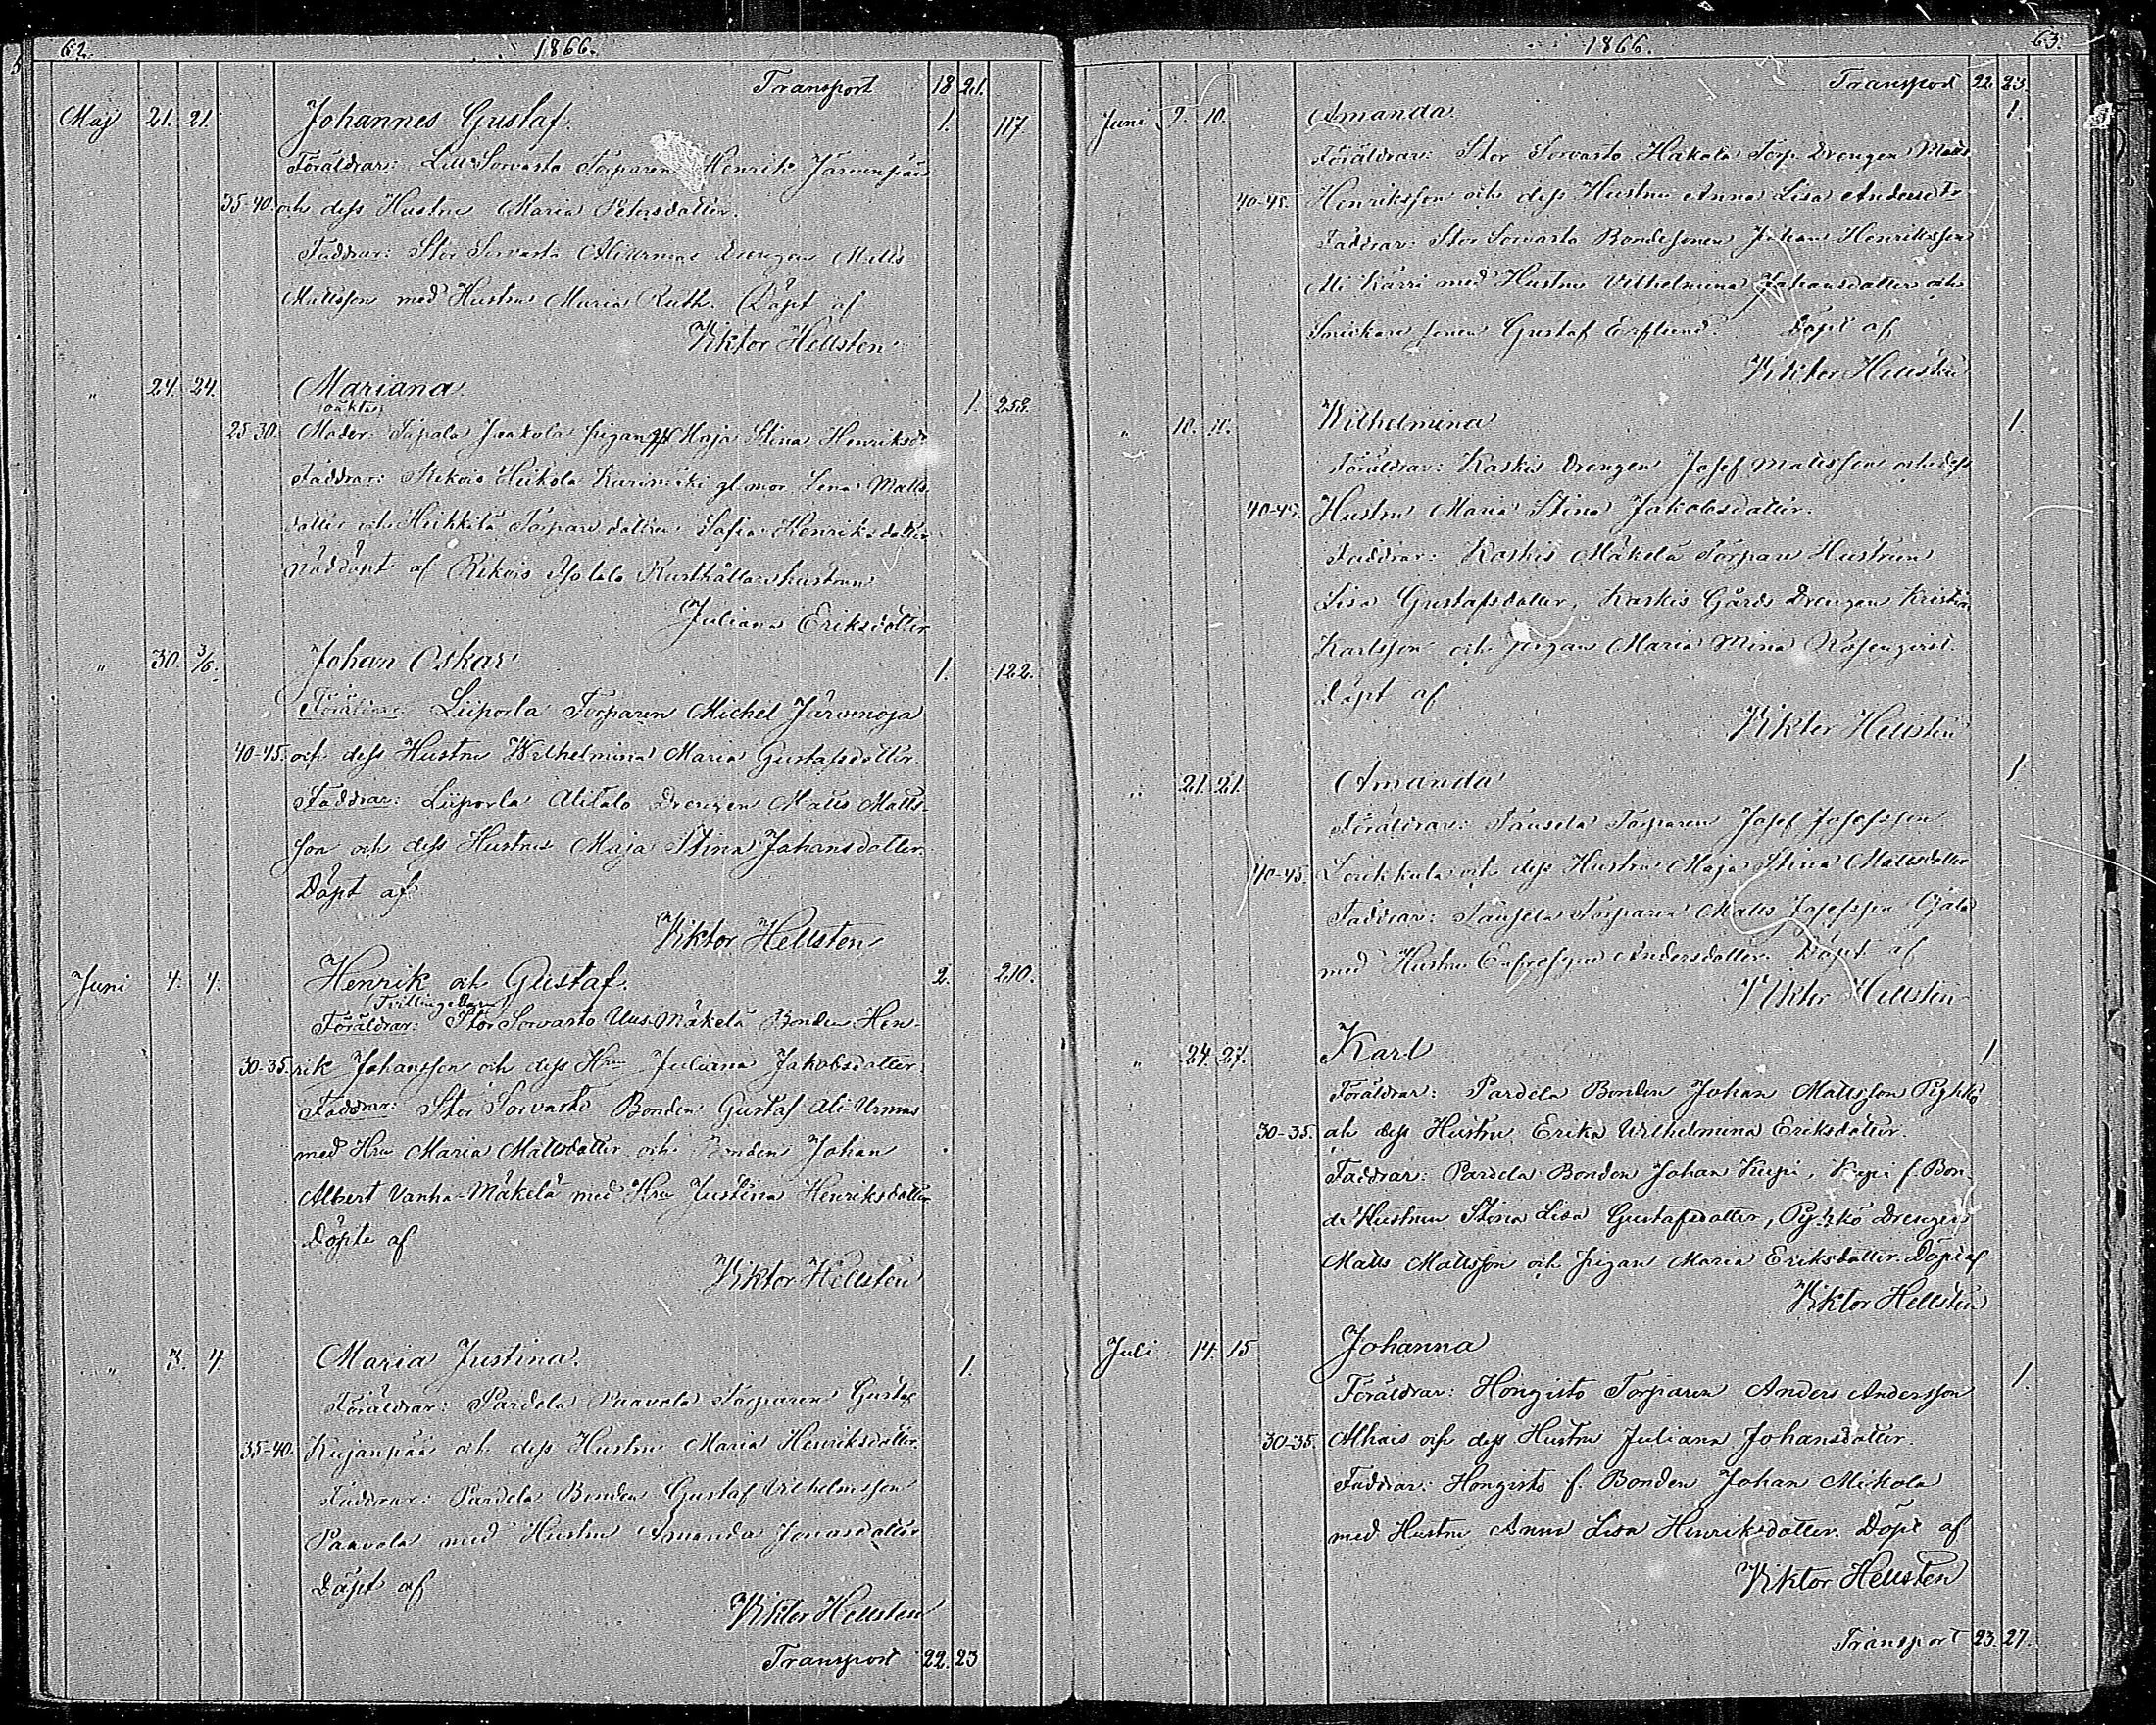 62. 1866.
Transport 18 21.
Maj 21. 21. Johannes Gustaf. 1. 117.
Föräldrar: Lill Sorvasto Torparen Henrik Järvenpää
35-40. och dess Hustru Maria Petersdotter.
Faddrar: Stor Sorvasto Drengen Matts
Mattsson med Hustru Maria Ruth. Döpt af
Viktor Hellsten
" 24. 24. Mariana 1. 258.
(oäkta)
25-30. Moder: Jaakola pigan Maja Stina Henriksdr
Faddrar: Rekois Heikola gl. mor Lena Matts-
dotter och Heikkilä Torpare dottren Sofia Henriksdotter
Nöddöpt af Rekois Isotalo Rusthållarehustrun
Juliana Eriksdotter
" 30. 3/6. Johan Oskar 1. 122.
Föräldrar: Liipola Torparen Michel Järvenoja
40-45. och dess Hustru Wilhelmina Maria Gustafsdotter.
Faddrar: Liipola Alitalo Drengen Matts Matts-
son och dess Hustru Maja Stina Johansdotter.
Döpt af
Viktor Hellsten
Juni 4. 4. Henrik och Gustaf. 2. 210.
(Tvillingebarn)
Föräldrar: Stor Sorvasto Uus-Mäkelä Bonden Hen-
30-35. rik Johansson och dess Hru Juliana Jakobsdotter.
Faddrar: Stor Sorvasto Bonden Gustaf Ali-Urmas
med Hru Maria Mattsdotter och Bonden Johan
Albert Vanha-Mäkelä med Hru Justina Henriksdotter
Döpte af
Viktor Hellsten
" 3. 4. Maria Justina. 1.
Föräldrar: Pardela Paavola Torparen Gustaf
35-40. Kujanpää och dess Hustru Maria Henriksdotter.
Faddrar: Pardela Bonden Gustaf Vilhelmsson
Paavola med Hustru Amanda Jonasdotter
Döpt af
Viktor Hellsten
Transport 22. 23
1866. 63.
Transport 22. 23.
Juni 9. 10. Amanda 1.
Föräldrar: Stor Sorvasto Hakala Torp Drengen Matts
40-45. Henriksson och dess Hustru Anna Lisa Andersdr
Faddrar: Stor Sorvasto Bondesonen Johan Henriksson
Ali Kärri med Hustru Vilhelmina Johansdotter och
Snickare sonen Gustaf Döpt af
Viktor Hellsten
" 10. 10. Wilhelmina 1.
Föräldrar: Kaskis Drengen Josef Mattsson och dess
40-45. Hustru Maria Stina Jakobsdotter.
Faddrar: Kaskis Mäkelä Torpare Hustrun
Lisa Gustafsdotter, Kaskis Gårds Drengen Kristian
Karlsson och pigan Maria Mina Rosenqvist.
Döpt af
Viktor Hellsten
" 21. 21. Amanda 1.
Föräldrar: Torparen Josef Josefsson
40-45. och dess Hustru Maja Stina Mattsdotter
Faddrar: Torparen Matts Josefsson Ojala
med Hustru Andersdotter. Döpt af
Viktor Hellsten
" 24. 27. Karl 1
Föräldrar: Pardela Bonden Johan Mattsson Pyhkö
30-35. och dess Hustru Erika Wilhelmina Eriksdotter.
Faddrar: Pardela Bonden Johan Kepi, Kepi f. Bon-
de Hustrun Stina Lisa Gustafsdotter, Pyhkö Drengen
Matts Mattsson och pigan Maria Eriksdotter. Döpt af
Viktor Hellsten
Juli 14. 15. Johanna 1.
Föräldrar: Hongisto Torparen Anders Andersson
30-35. Alhais och dess Hustru Juliana Johansdotter.
Faddrar: Hongisto f. Bonden Johan Mikola
med Hustru Anna Lisa Henriksdotter. Döpt af
Viktor Hellsten
Transport 23. 27.